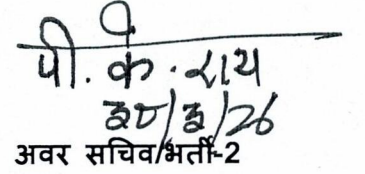 पी. के. राय
३०/३/26
अवर सचिव/भर्ती-2